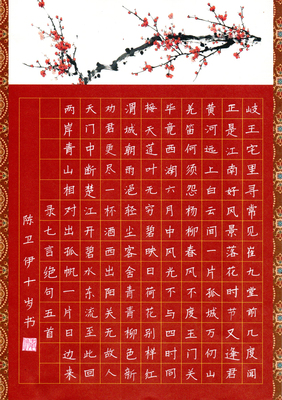 岐王宅里寻常见崔九堂前几度闻
正是江南好风景落花时节又逢君
黄河远上白云间一片孤城万仞山
羌笛何须怨杨柳春风不度玉门关
毕竟西湖六月中风光不与四时同
接天莲叶无穷碧映日荷花别样红
渭城朝雨浥轻尘客舍青青柳色新
劝君更尽一杯酒西出阳关无故人
天门中断楚江开碧水东流至此回
两岸青山相对出孤帆一片日边来
录七言绝句五首
陈卫伊十岁书